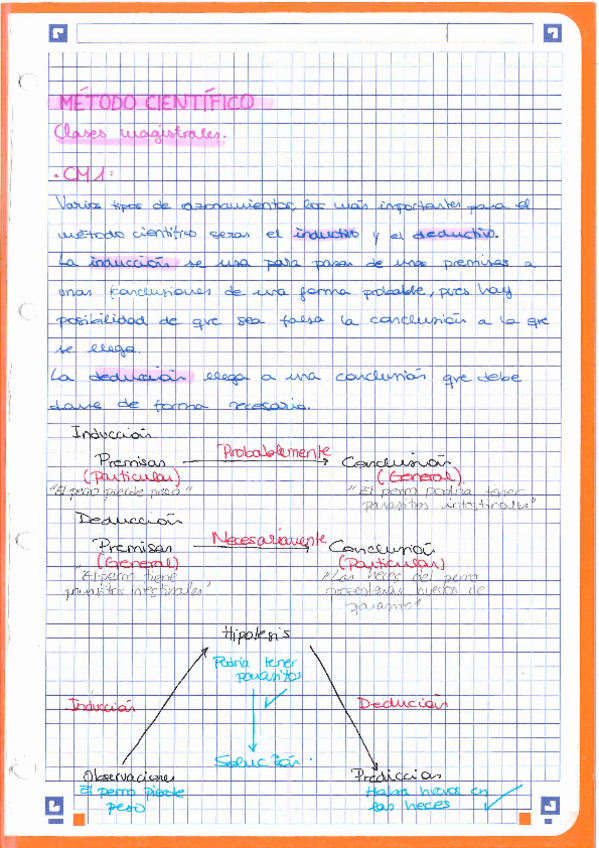 MÉTODO CIENTÍFICO
Clases magistrales.
• CM1:
Varios tipos de razonamientos, los más importantes para el
método científico seran el inductivo y el deductivo.
La inducción se usa para pasar de unas premisas a
unas conclusiones de una forma probable, pues hay
posibilidad de que sea falsa la conclusión a la que
se llega.
La deducción llega a una conclusión que debe
darse de forma necesaria.
Inducción
Premisas Probablemente Conclusión
(Particular) (General)
"El perro pierde peso" "El perro podria tener
parasitos intestinales"
Deducción
Premisas Necesariamente Conclusión
(General) (Particular)
"El perro tiene "Las heces del perro
parasitos intestinales" presentarán huevos de
Hipotesis
Podria tener
parasitos
Inducción Deducción
Solución
Observaciones Predicción
El perro pierde Habrá huevos en
peso las heces